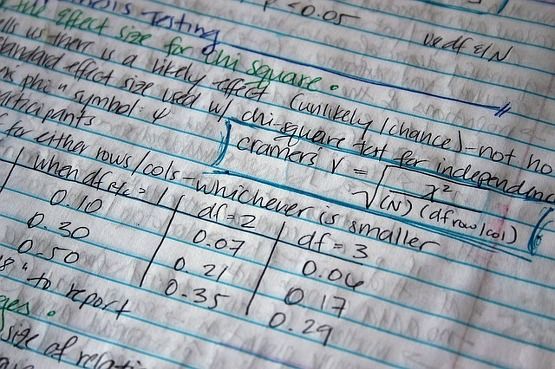 p < 0.05
hesis Testing
effect size for chi square.
us there is a likely effect (unlikely / chance) - not ho
andard effect size used w/ chi-square test for independ
phi " symbol: φ
articipants
cramers V = √ x² / (N)(df row/col)
for either rows/cols - whichever is smaller
when df = 1 | df = 2 | df = 3
0.10 | 0.07 | 0.06
0.30 | 0.21 | 0.17
0.50 | 0.35 | 0.29
" to report
size of relati